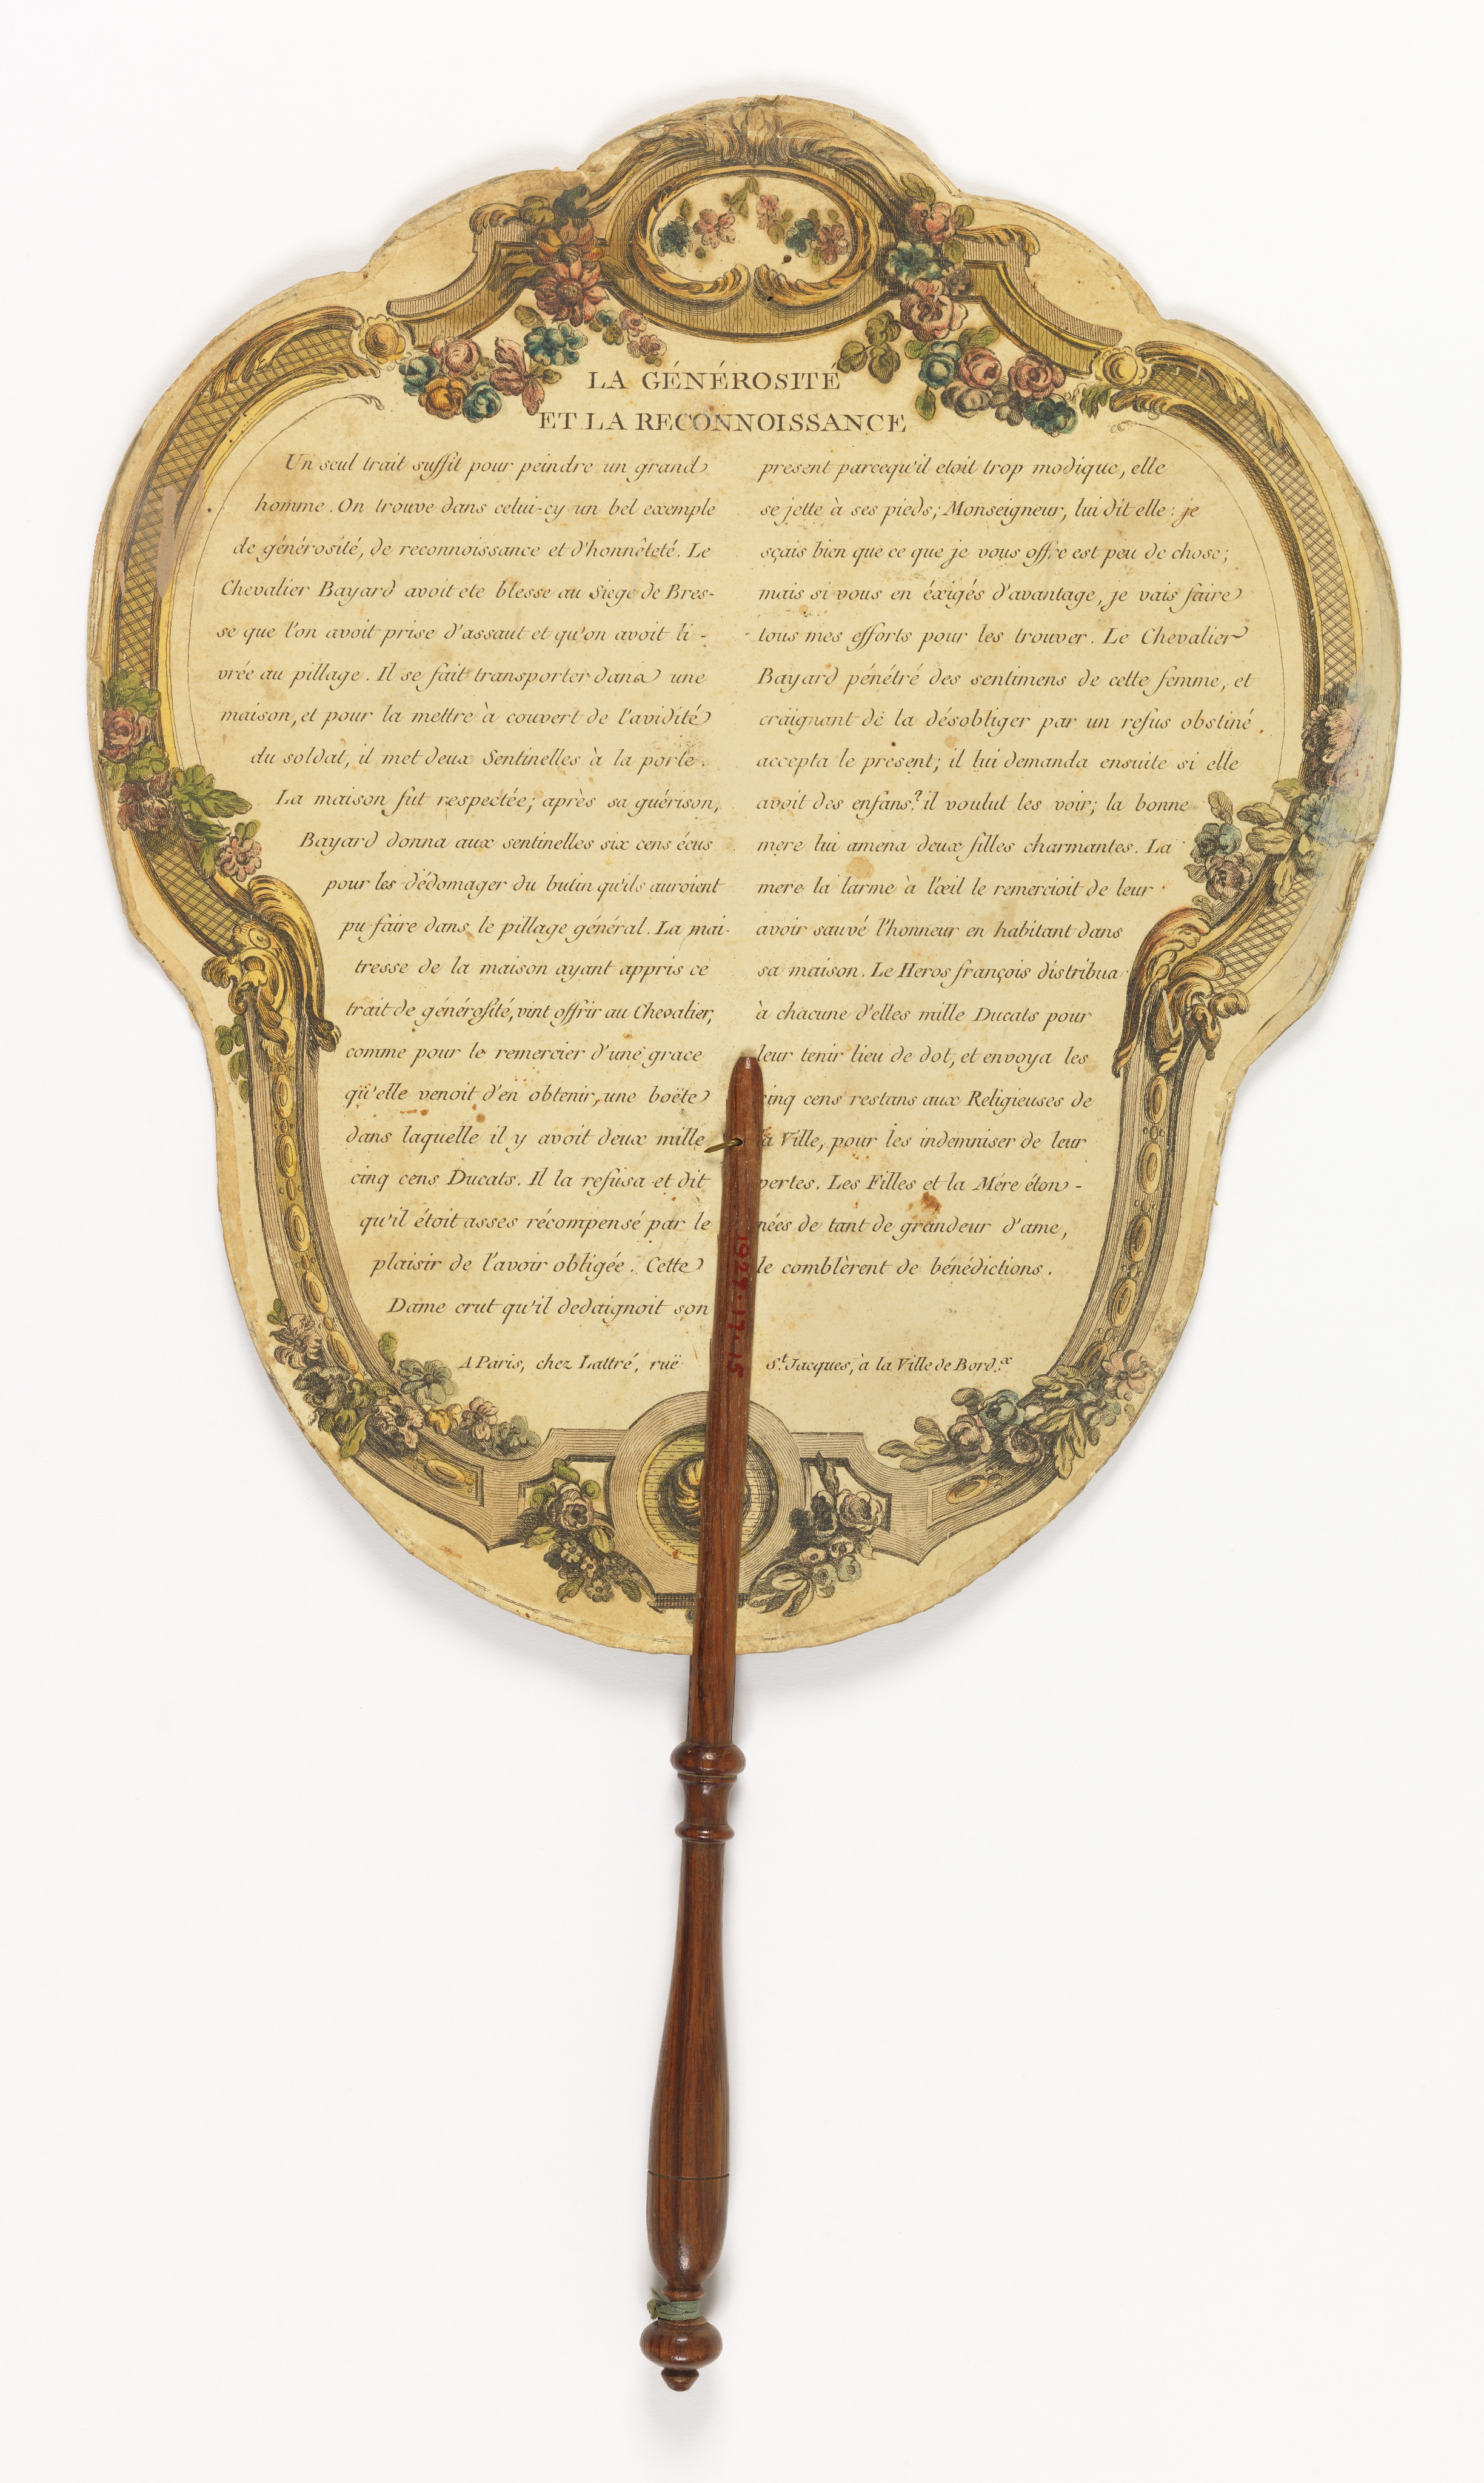 LA GÉNÉROSITÉ
ET LA RECONNOISSANCE
Un seul trait suffit pour peindre un grand
homme. On trouve dans celui-cy un bel exemple
de générosité, de reconnoissance et d'honnêteté. Le
Chevalier Bayard avoit ete blesse au Siege de Bres-
se que l'on avoit prise d'assaut et qu'on avoit li-
vrée au pillage. Il se fait transporter dans une
maison, et pour la mettre à couvert de l'avidité
du soldat, il met deux Sentinelles à la porte.
La maison fut respectée; après sa guérison,
Bayard donna aux sentinelles six cens écus
pour les dédomager du butin qu'ils auroient
pu faire dans le pillage général. La mai-
tresse de la maison ayant appris ce
trait de générosité, vint offrir au Chevalier,
comme pour le remercier d'une grace
qu'elle venoit d'en obtenir, une boëte
dans laquelle il y avoit deux mille
cinq cens Ducats. Il la refusa et dit
qu'il étoit asses récompensé par le
plaisir de l'avoir obligée. Cette
Dame crut qu'il dedaignoit son
present parcequ'il etoit trop modique, elle
se jette à ses pieds; Monseigneur, lui dit elle: je
sçais bien que ce que je vous offre est peu de chose;
mais si vous en éxigés d'avantage, je vais faire
tous mes efforts pour les trouver. Le Chevalier
Bayard pénétré des sentimens de cette femme, et
craignant de la désobliger par un refus obstiné,
accepta le present; il lui demanda ensuite si elle
avoit des enfans? il voulut les voir; la bonne
mere lui amena deux filles charmantes. La
mere la larme à l'œil le remercioit de leur
avoir sauvé l'honneur en habitant dans
sa maison. Le Heros françois distribua
à chacune d'elles mille Ducats pour
leur tenir lieu de dot, et envoya les
cinq cens restans aux Religieuses de
la Ville, pour les indemniser de leur
pertes. Les Filles et la Mére éton-
nées de tant de grandeur d'ame,
le comblèrent de bénédictions.
A Paris, chez Lattré, ruë St. Jacques, à la Ville de Bord.x
1929-17-15